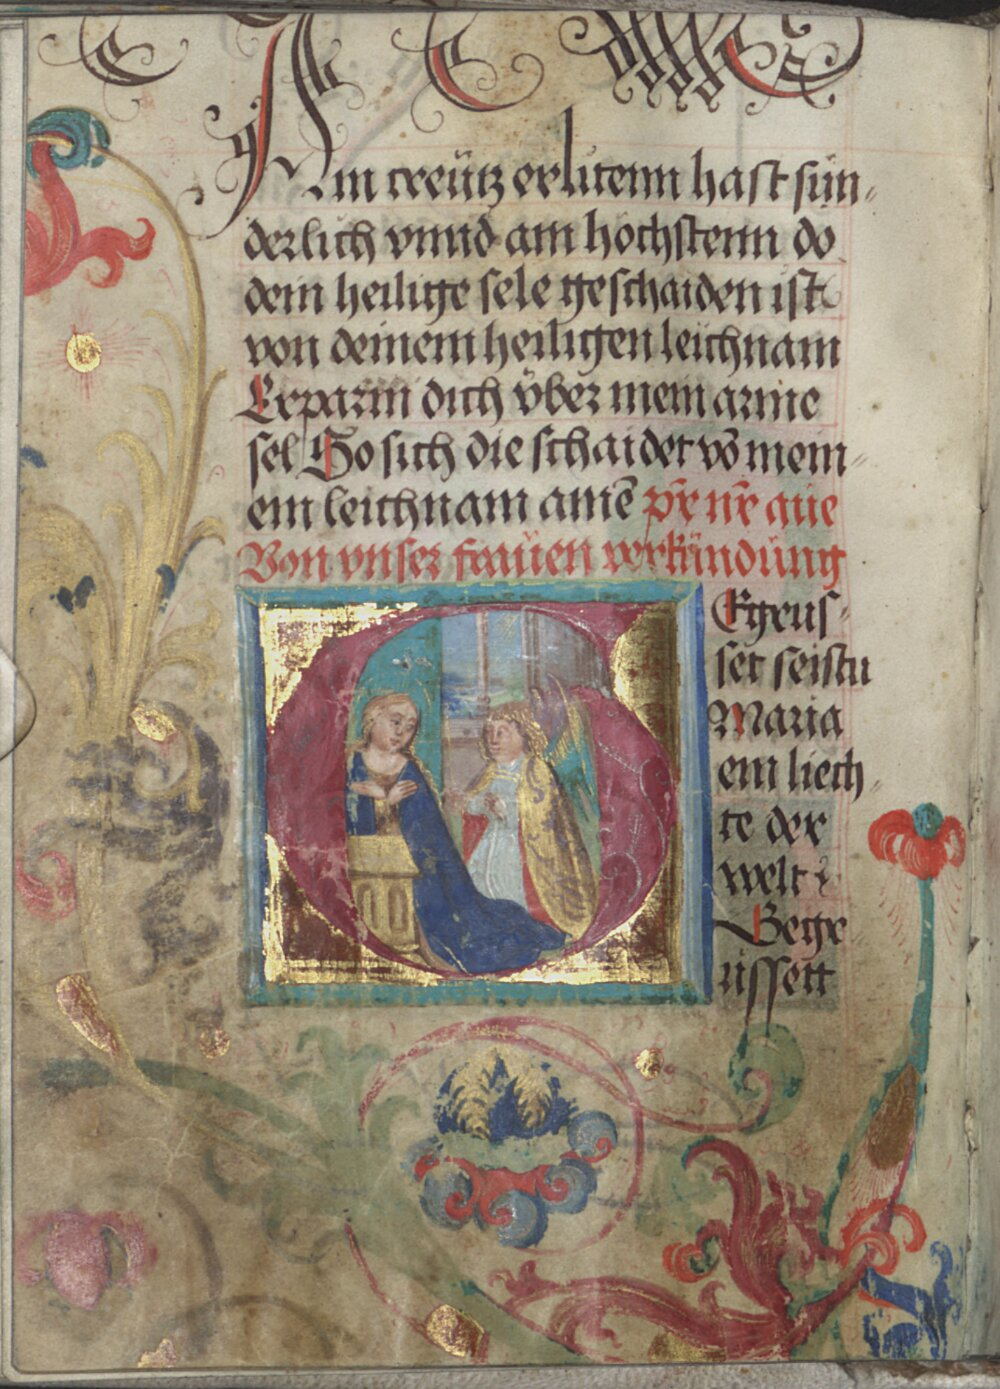 Am creütz erlitenn hast sün„
derlich vnnd am höchstenn do
dein heilige sele geschaiden ist
von deinem heiligen leichnam
Erparm dich v̈ber mein arme
sel So sich die schaidet võ mein„
em leichnam amē pr̄ nr̄ aue
Von vnser frauen verkündüng
Egrus„
set seistu
Maria
ein liech„
te der
welt
Gegr
üssett